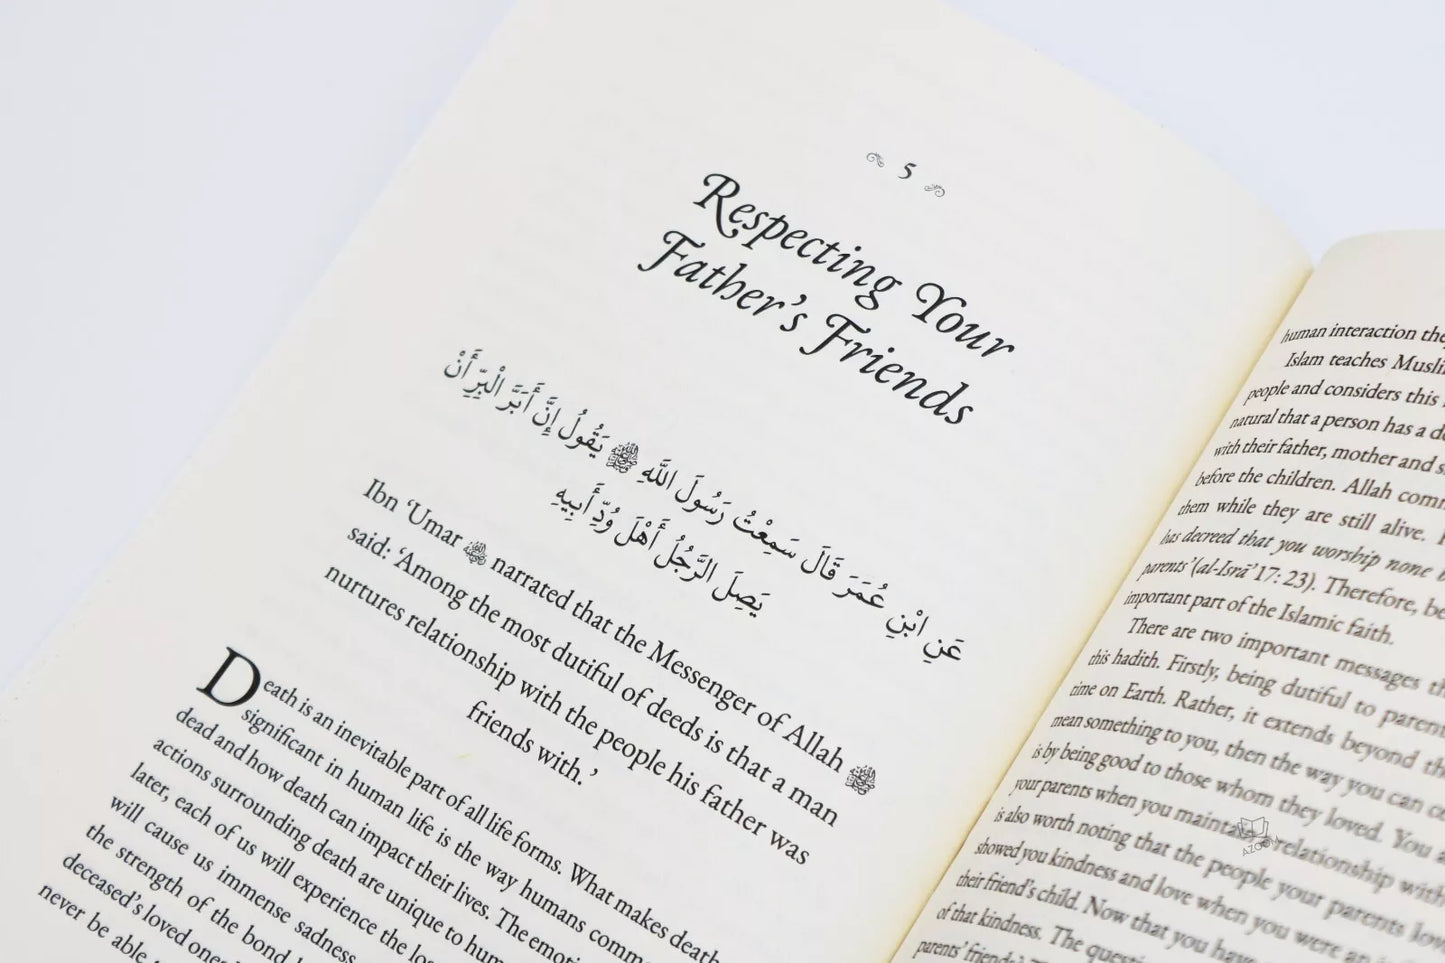 5
Respecting Your
Father's Friends
عَنِ ابْنِ عُمَرَ قَالَ سَمِعْتُ رَسُولَ اللَّهِ ﷺ يَقُولُ إِنَّ أَبَرَّ الْبِرِّ أَنْ
يَصِلَ الرَّجُلُ أَهْلَ وُدِّ أَبِيهِ
Ibn ‘Umar narrated that the Messenger of Allah ﷺ
said: ‘Among the most dutiful of deeds is that a man
nurtures relationship with the people his father was
friends with.’
Death is an inevitable part of all life forms. What makes death
significant in human life is the way humans
dead and how death can impact their lives. The
actions surrounding death are unique to
later, each of us will experience the
will cause us immense sadness
the strength of the bond
deceased's loved
never be able
human interaction
Islam teaches
people and considers this
natural that a person has a
with their father, mother and
before the children. Allah
them while they are still alive.
has decreed that you worship none
parents’ (al-Isrā’ 17: 23). Therefore,
important part of the Islamic faith.
There are two important messages
this hadith. Firstly, being dutiful to
time on Earth. Rather, it extends beyond
mean something to you, then the way you can
is by being good to those whom they loved. You
your parents when you maintain relationship with
is also worth noting that the people your parents
showed you kindness and love when you were an
their friend's child. Now that you have
of that kindness. The
parents' friends
AZOOM